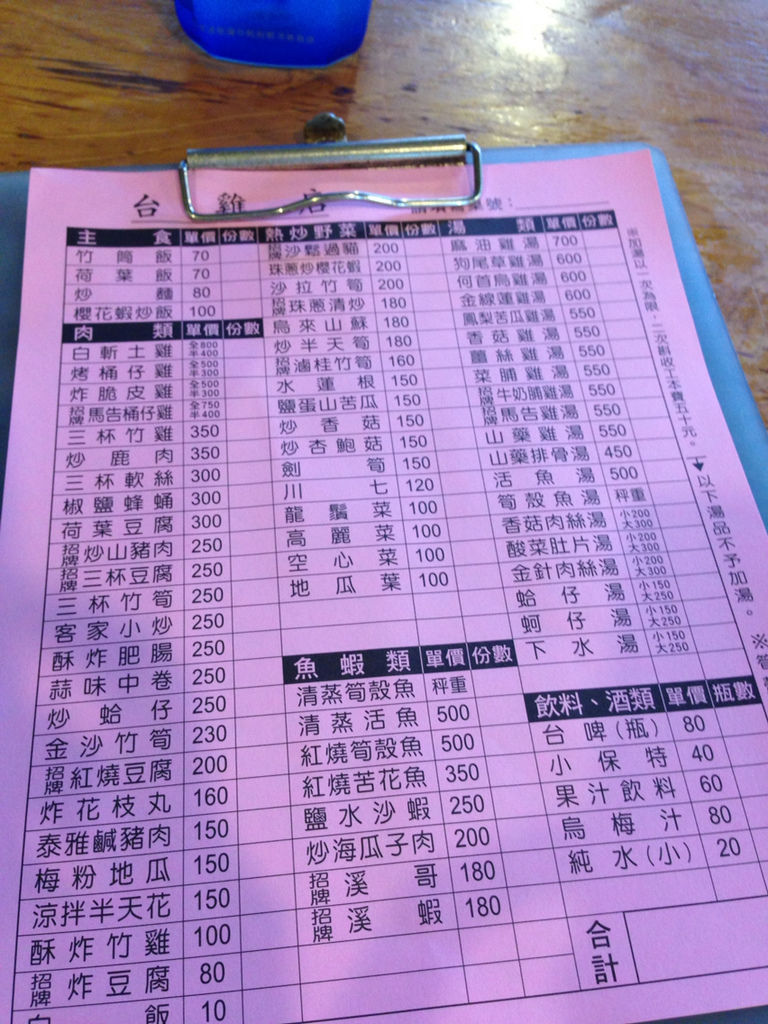 台雞店
主食 單價 份數
竹筒飯 70
荷葉飯 70
炒麵 80
櫻花蝦炒飯 100
肉類 單價 份數
白斬土雞 全800 半400
烤桶仔雞 全500 半300
炸脆皮雞 全500 半300
招牌馬告桶仔雞 全750 半400
三杯竹雞 350
炒鹿肉 350
三杯軟絲 300
椒鹽蜂蛹 300
荷葉豆腐 300
招牌炒山豬肉 250
招牌三杯豆腐 250
三杯竹筍 250
客家小炒 250
酥炸肥腸 250
蒜味中卷 250
炒蛤仔 250
金沙竹筍 230
招牌紅燒豆腐 200
炸花枝丸 160
泰雅鹹豬肉 150
梅粉地瓜 150
涼拌半天花 150
酥炸竹雞 100
招牌炸豆腐 80
白飯 10
熱炒野菜 單價 份數
招牌沙鬆過貓 200
珠蔥炒櫻花蝦 200
沙拉竹筍 200
招牌珠蔥清炒 180
烏來山蘇 180
炒半天筍 180
招牌滷桂竹筍 160
水蓮根 150
鹽蛋山苦瓜 150
炒香菇 150
炒杏鮑菇 150
劍筍 150
川七 120
龍鬚菜 100
高麗菜 100
空心菜 100
地瓜葉 100
魚蝦類 單價 份數
清蒸筍殼魚 秤重
清蒸活魚 500
紅燒筍殼魚 500
紅燒苦花魚 350
鹽水沙蝦 250
炒海瓜子肉 200
招牌溪哥 180
招牌溪蝦 180
湯類 單價 份數
麻油雞湯 700
狗尾草雞湯 600
何首烏雞湯 600
金線蓮雞湯 600
鳳梨苦瓜雞湯 550
香菇雞湯 550
薑絲雞湯 550
菜脯雞湯 550
招牌牛奶脯雞湯 550
招牌馬告雞湯 550
山藥雞湯 550
山藥排骨湯 450
活魚湯 500
筍殼魚湯 秤重
香菇肉絲湯 小200 大300
酸菜肚片湯 小200 大300
金針肉絲湯 小200 大300
蛤仔湯 小150 大250
蚵仔湯 小150 大250
下水湯 小150 大250
飲料、酒類 單價 瓶數
台啤(瓶) 80
小保特 40
果汁飲料 60
烏梅汁 80
純水(小) 20
合計
※加湯以一次為限，二次酌收工本費五十元。
↓以下湯品不予加湯。